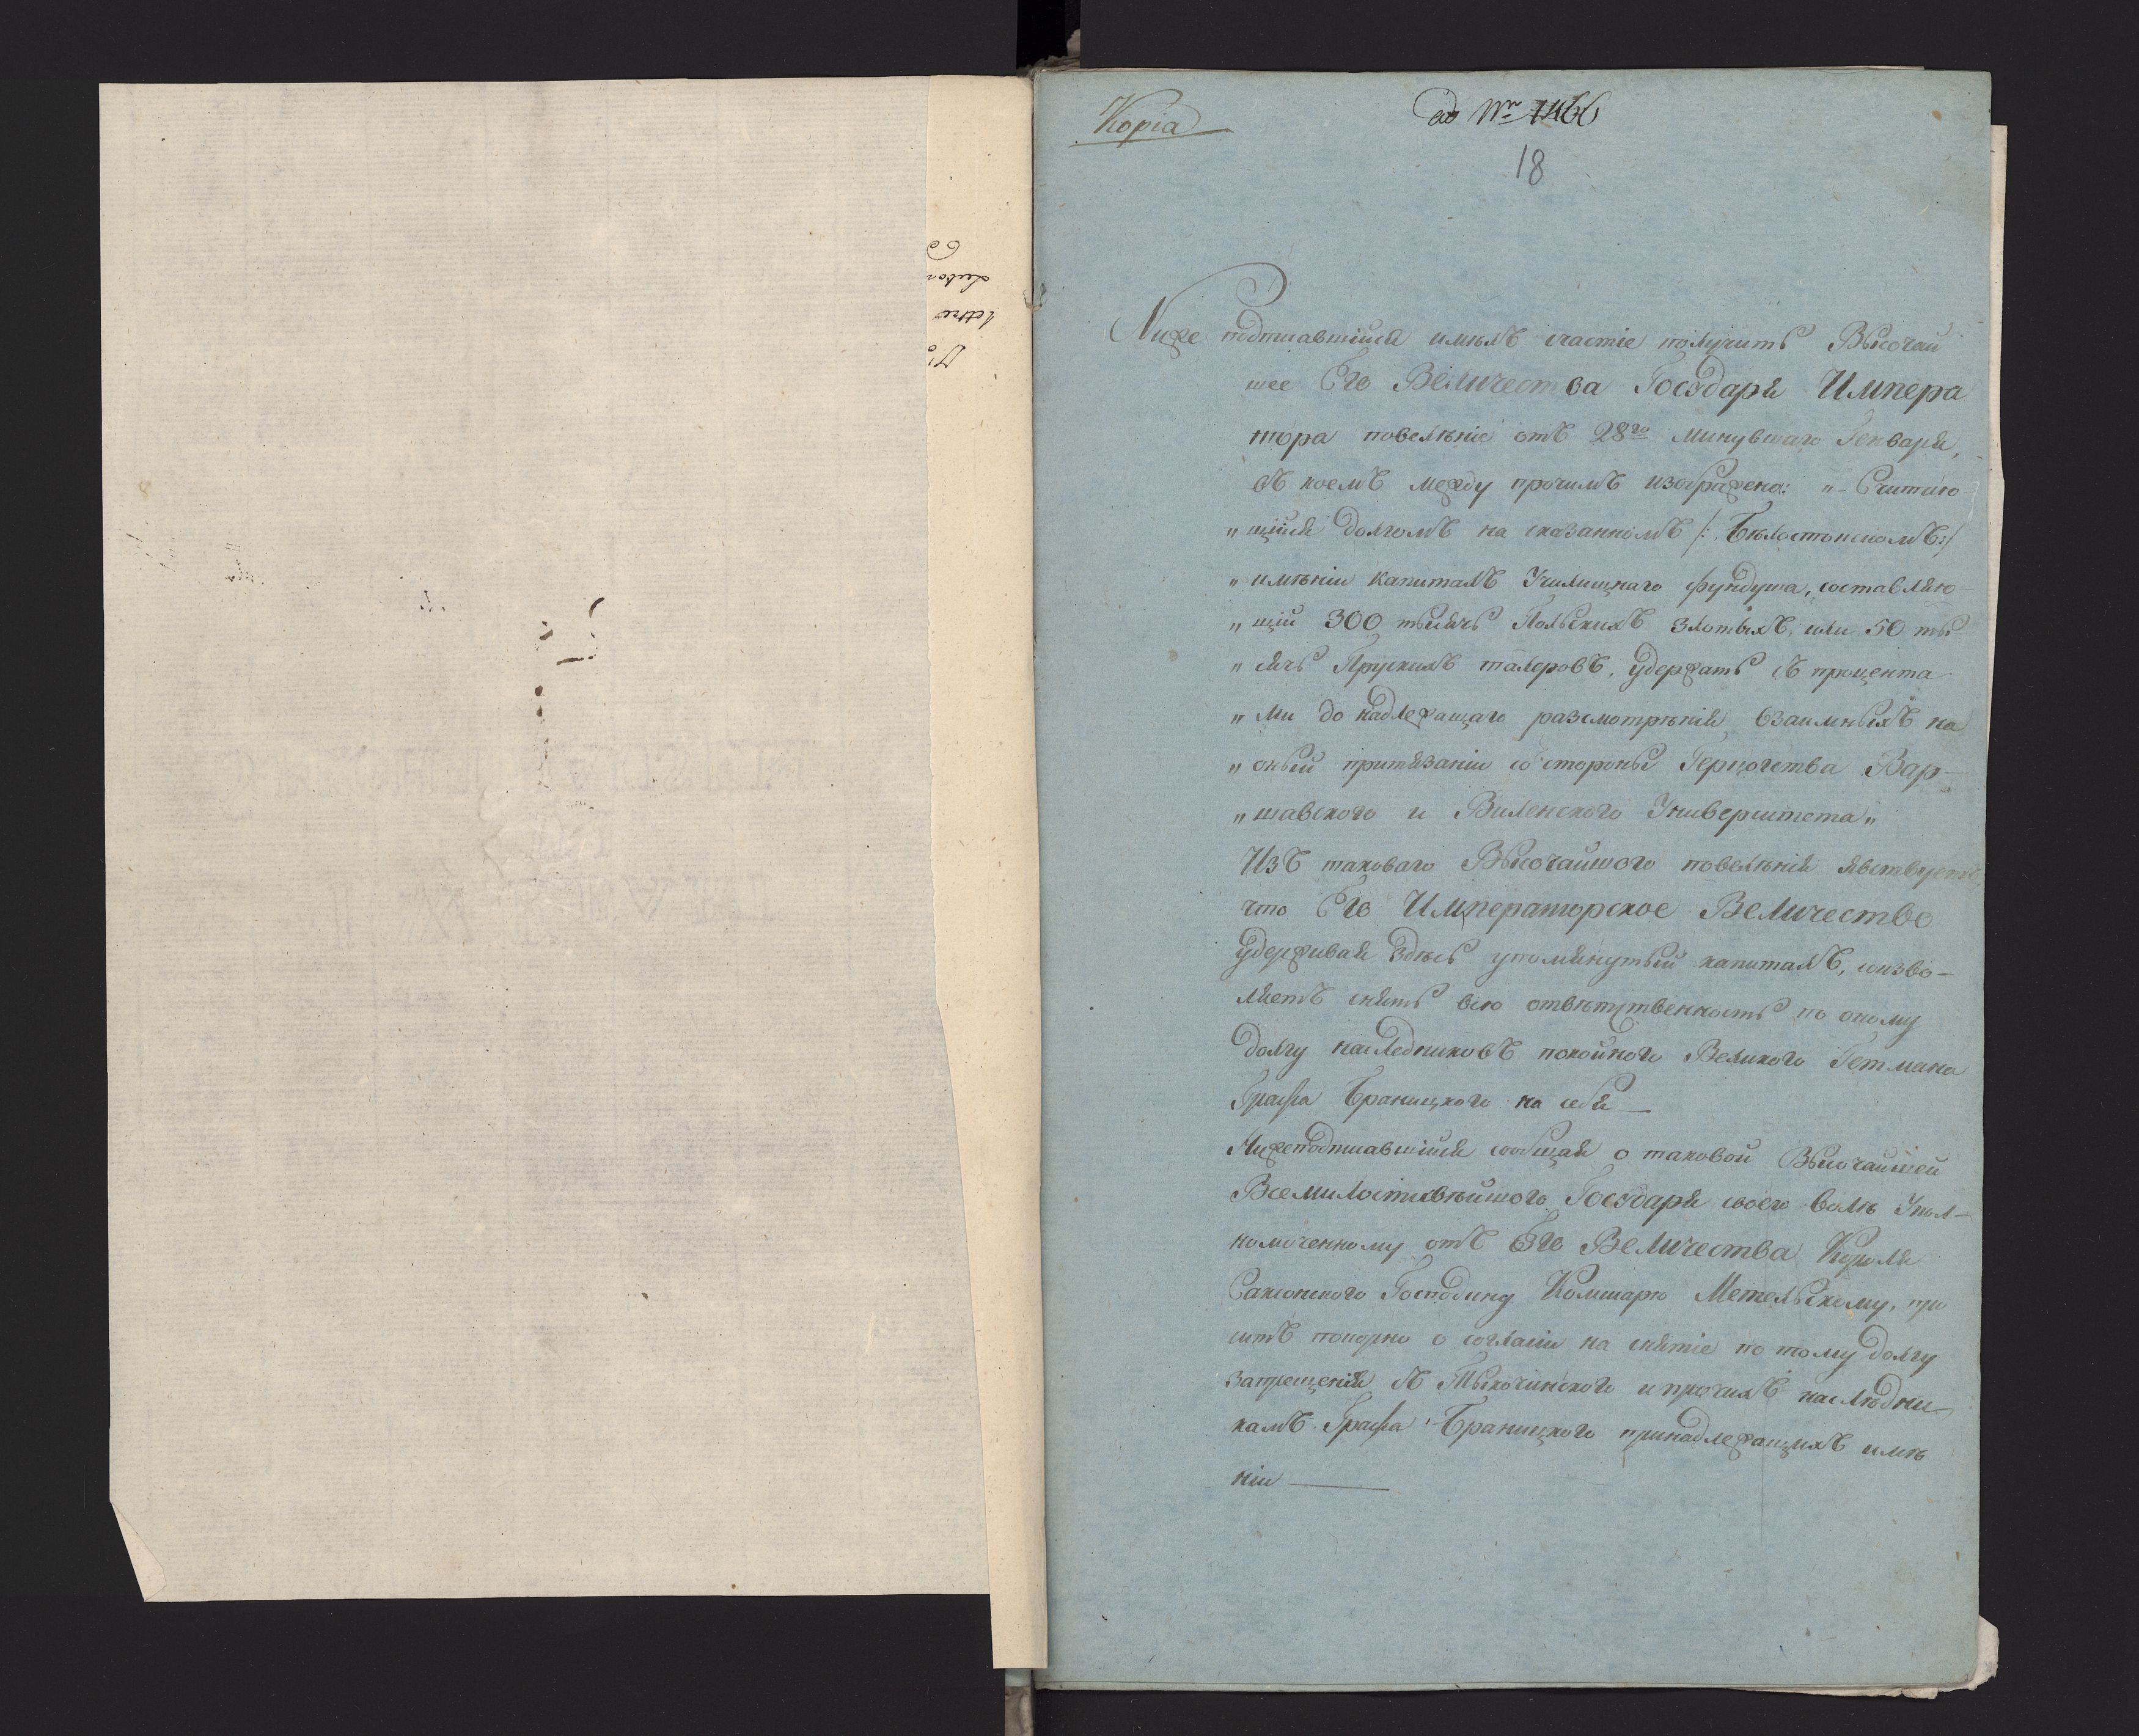 Копіа
ad Nr 1466
18
Ниже подписавшійся имѣлъ счастіе получить Высочай
шее Его Величества Государя Импера
тора повелѣніе отъ 28го минувшаго Генваря,
въ коемъ между прочимъ изображено: „- Считаю-
„ щійся долгомъ на сказанномъ /: Бѣлостокскомъ :/
„ имѣніи капиталъ Училищнаго фундуша, составляю-
„ щій 300 тысячь Польскихъ злотыхъ, или 50 ты
„ сячь Прускихъ талеровъ, удержать съ процента
„ ми до надлежащаго разсмотрѣнія взаимныхъ на
„ оный притязаніи со стороны Герцогства Вар-
„ шавского и Виленского Университета„
Изъ таковаго Высочайшого повелѣнія явствуетъ
что Его Императорское Величество
удерживая здѣсь упомянутый капиталъ, соизво-
ляетъ снять всю отвѣтственность по оному
долгу наследниковъ покойного Великого Гетмана
Графа Браницкого на себя —
Нижеподписавшійся сообщая о таковой Высочайшей
Всемилостивѣйшого Государя своего волѣ Упол-
номоченному отъ Его Величества Короля
Саксонского Господину Комисарю Метельскому, про
ситъ покорно о согласіи на снятіе по тому долгу
запрещенія съ Тыкочинского и прочихъ наслѣдни-
камъ Графа Браницкого принадлежащихъ имѣ
ніи —